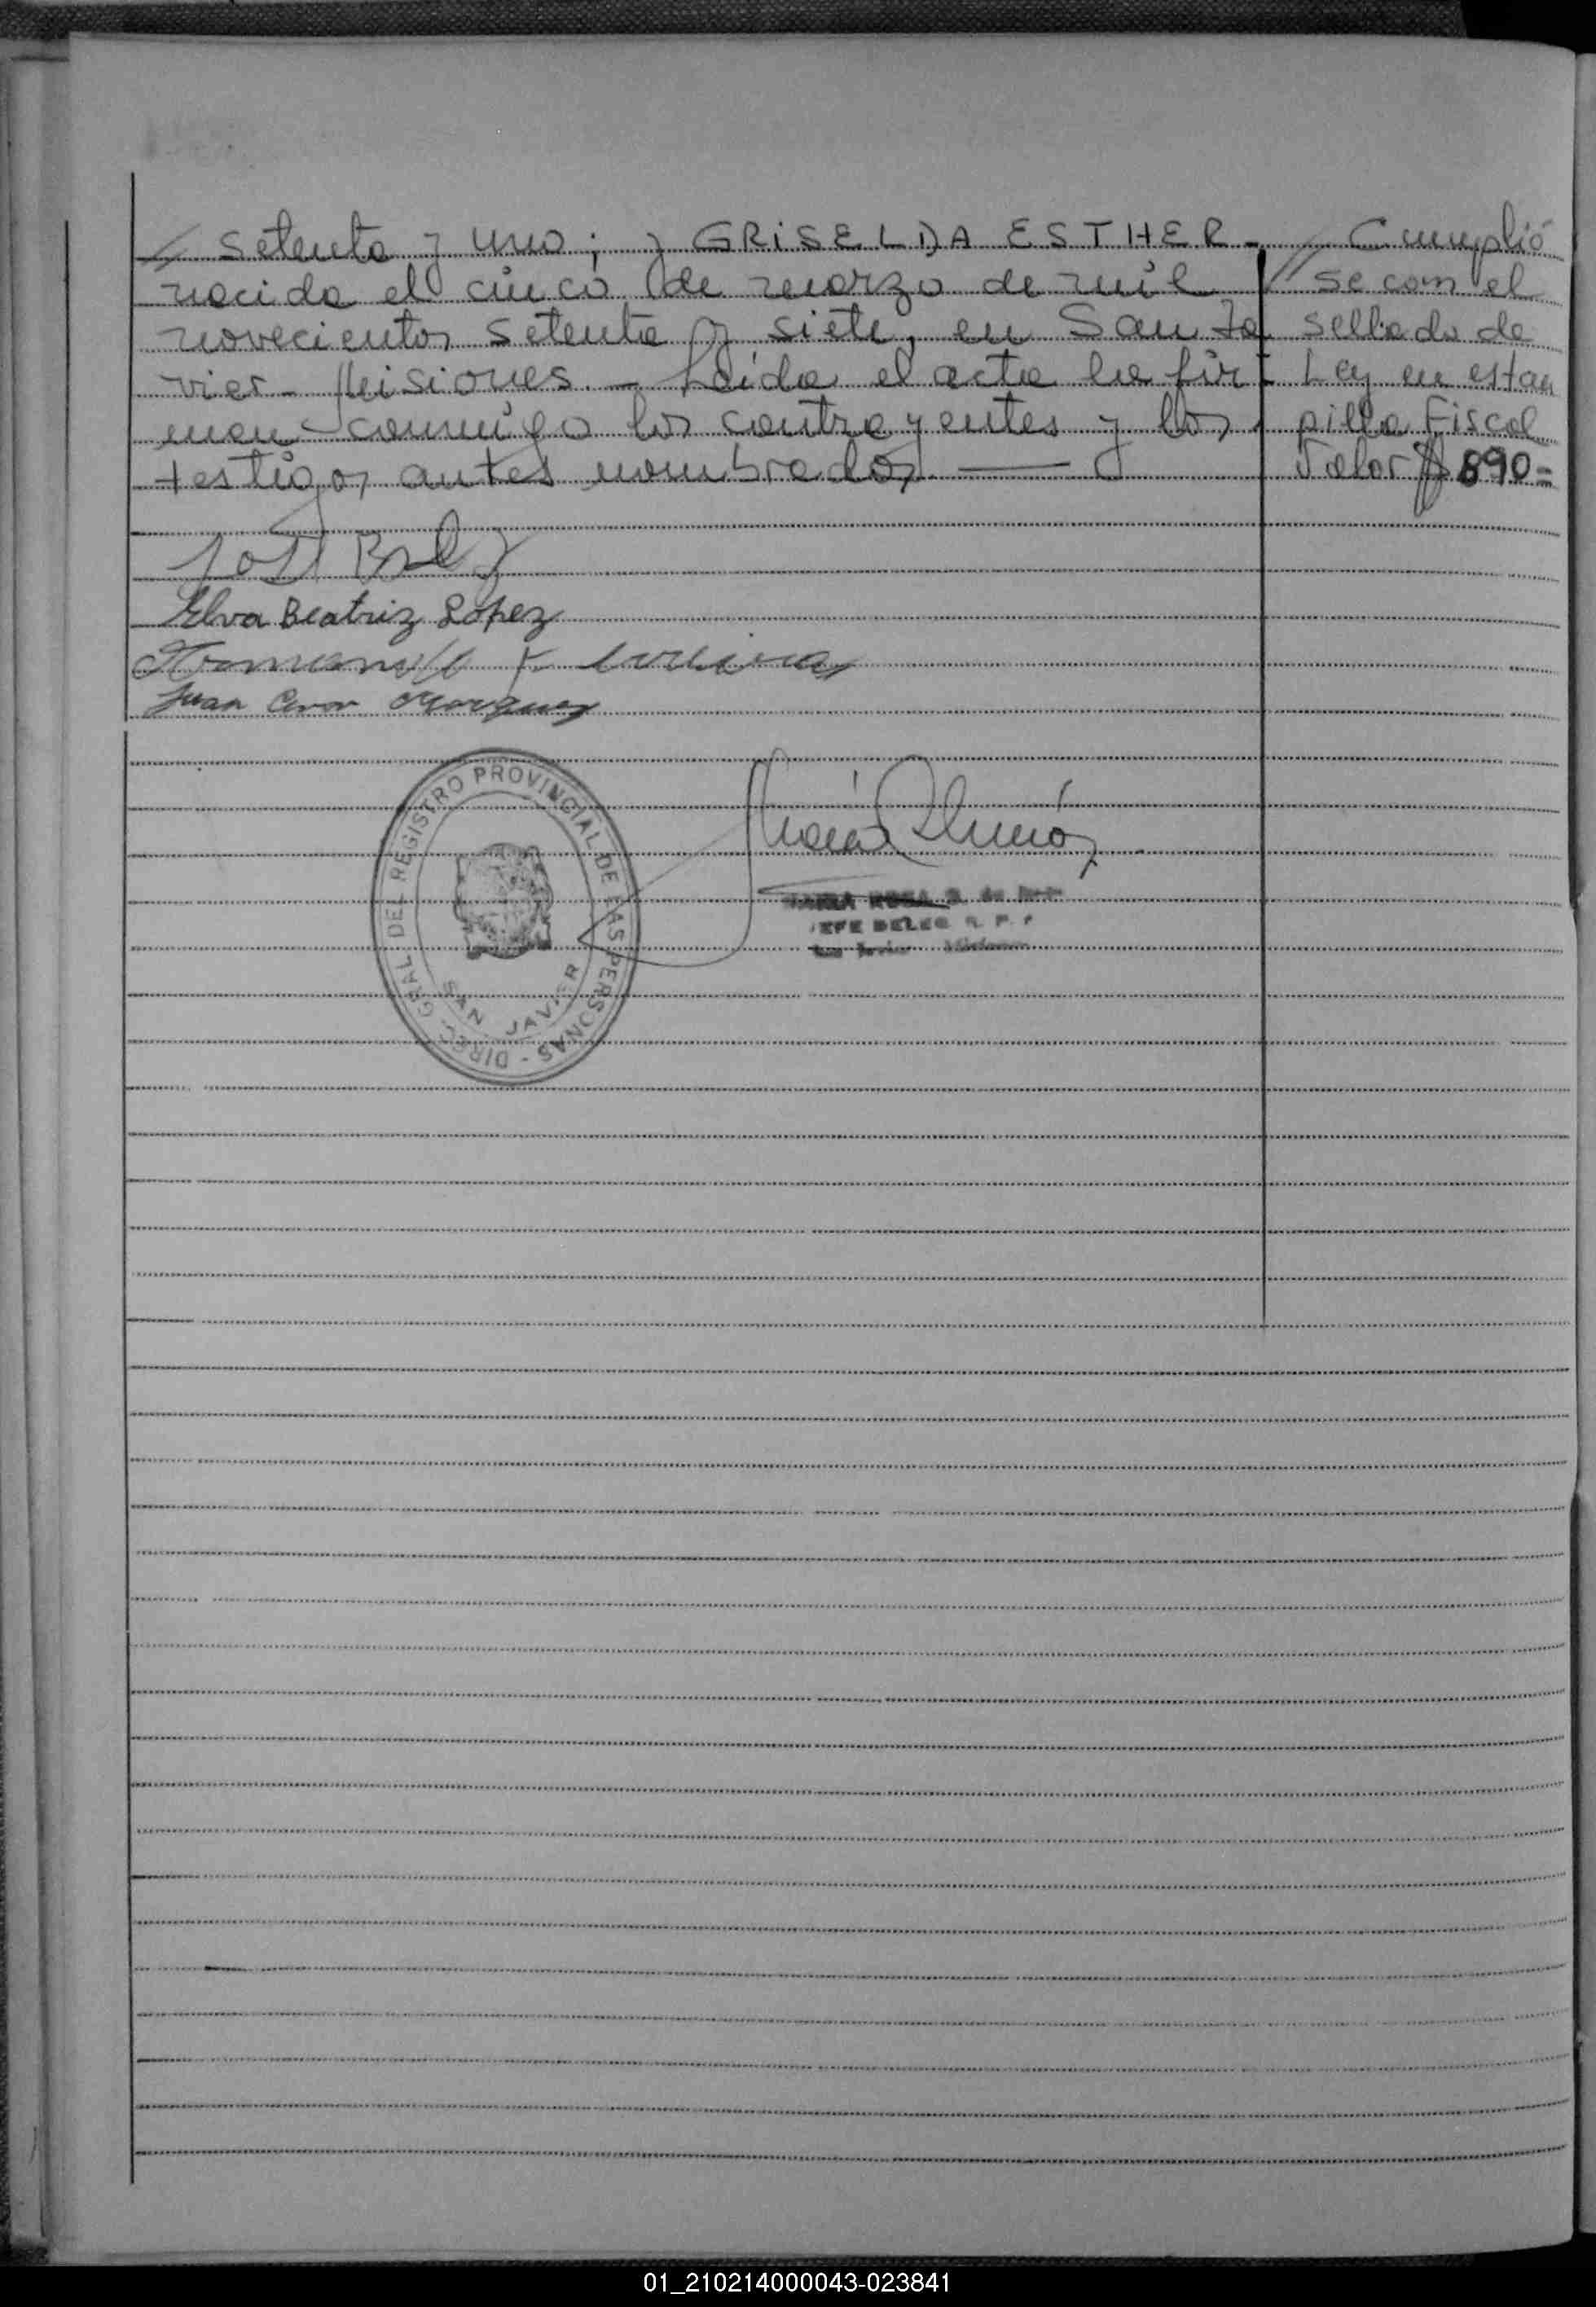 // setenta y uno; y GRISELDA ESTHER.-
nacida el cinco de marzo de mil
novecientos setenta y siete, en San Ja
vier - Misiones. - Leída el acta la fir
man conmigo los contrayentes y los
testigos antes nombrados. ——
// Cumplió
se con el
sellado de
Ley en estam
pilla Fiscal
Valor $ 890=
José
Elva Beatriz López
Juan Marquez
DIREC. GRAL DEL REGISTRO PROVINCIAL DE LAS PERSONAS -
SAN JAVIER
MARIA ROSA
JEFE DELEG. R. P.
San Javier Misiones
01_210214000043-023841